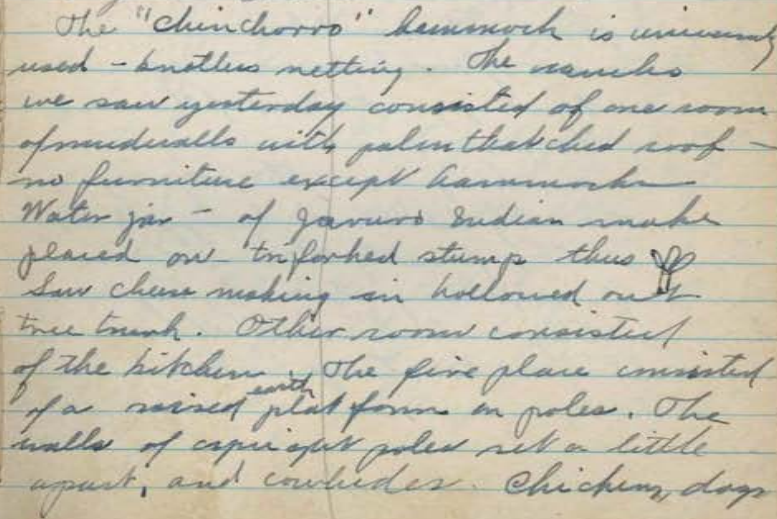 The "chinchorro" hammock is universally
used - knotless netting. The rancho
we saw yesterday consisted of one room
of mud walls with palm thatched roof -
no furniture except hammocks
Water jar - of Yaruro Indian make
placed on tri forked stump thus
Saw cheese making in hollowed out
tree trunk. Other room consisted
of the kitchen. The fire place consisted
of a raised earth platform on poles. The
walls of upright poles set a little
apart, and cowhides. Chickens, dogs